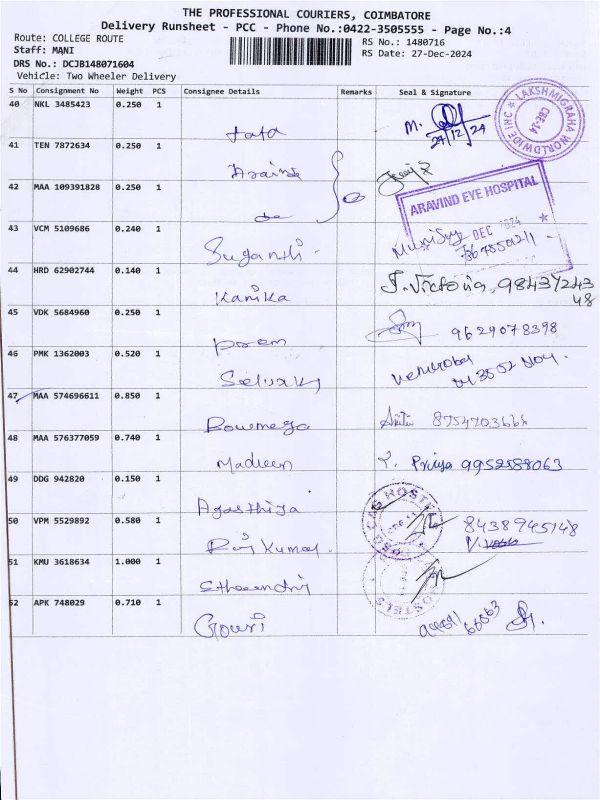 THE PROFESSIONAL COURIERS, COIMBATORE
Delivery Runsheet - PCC - Phone No.:0422-3505555 - Page No.:4
Route: COLLEGE ROUTE
RS No.: 1480716
Staff: MANI
RS Date: 27-Dec-2024
DRS No.: DCJB148071604
Vehicle: Two Wheeler Delivery
S No Consignment No Weight PCS Consignee Details Remarks Seal & Signature
40 NKL 3485423 0.250 1
LAKSHMIGRAHA WORLDWIDE INC
CBE-14
M.
27/12/24
41 TEN 7872634 0.250 1
ARAVIND EYE HOSPITAL
DEC
42 MAA 109391828 0.250 1
do
43 VCM 5109686 0.240 1
Suganthi
44 HRD 62902744 0.140 1
Kanika
J. Victoria, 9843724348
45 VDK 5684960 0.250 1
prem
9629078398
46 PMK 1362003 0.520 1
47 MAA 574696611 0.850 1
Powmega
48 MAA 576377059 0.740 1
Madleen
Priya 9952588063
49 DDG 942820 0.150 1
Agasthiya
50 VPM 5529892 0.580 1
Raj Kumar.
8438945148
51 KMU 3618634 1.000 1
52 APK 748029 0.710 1
Gouri